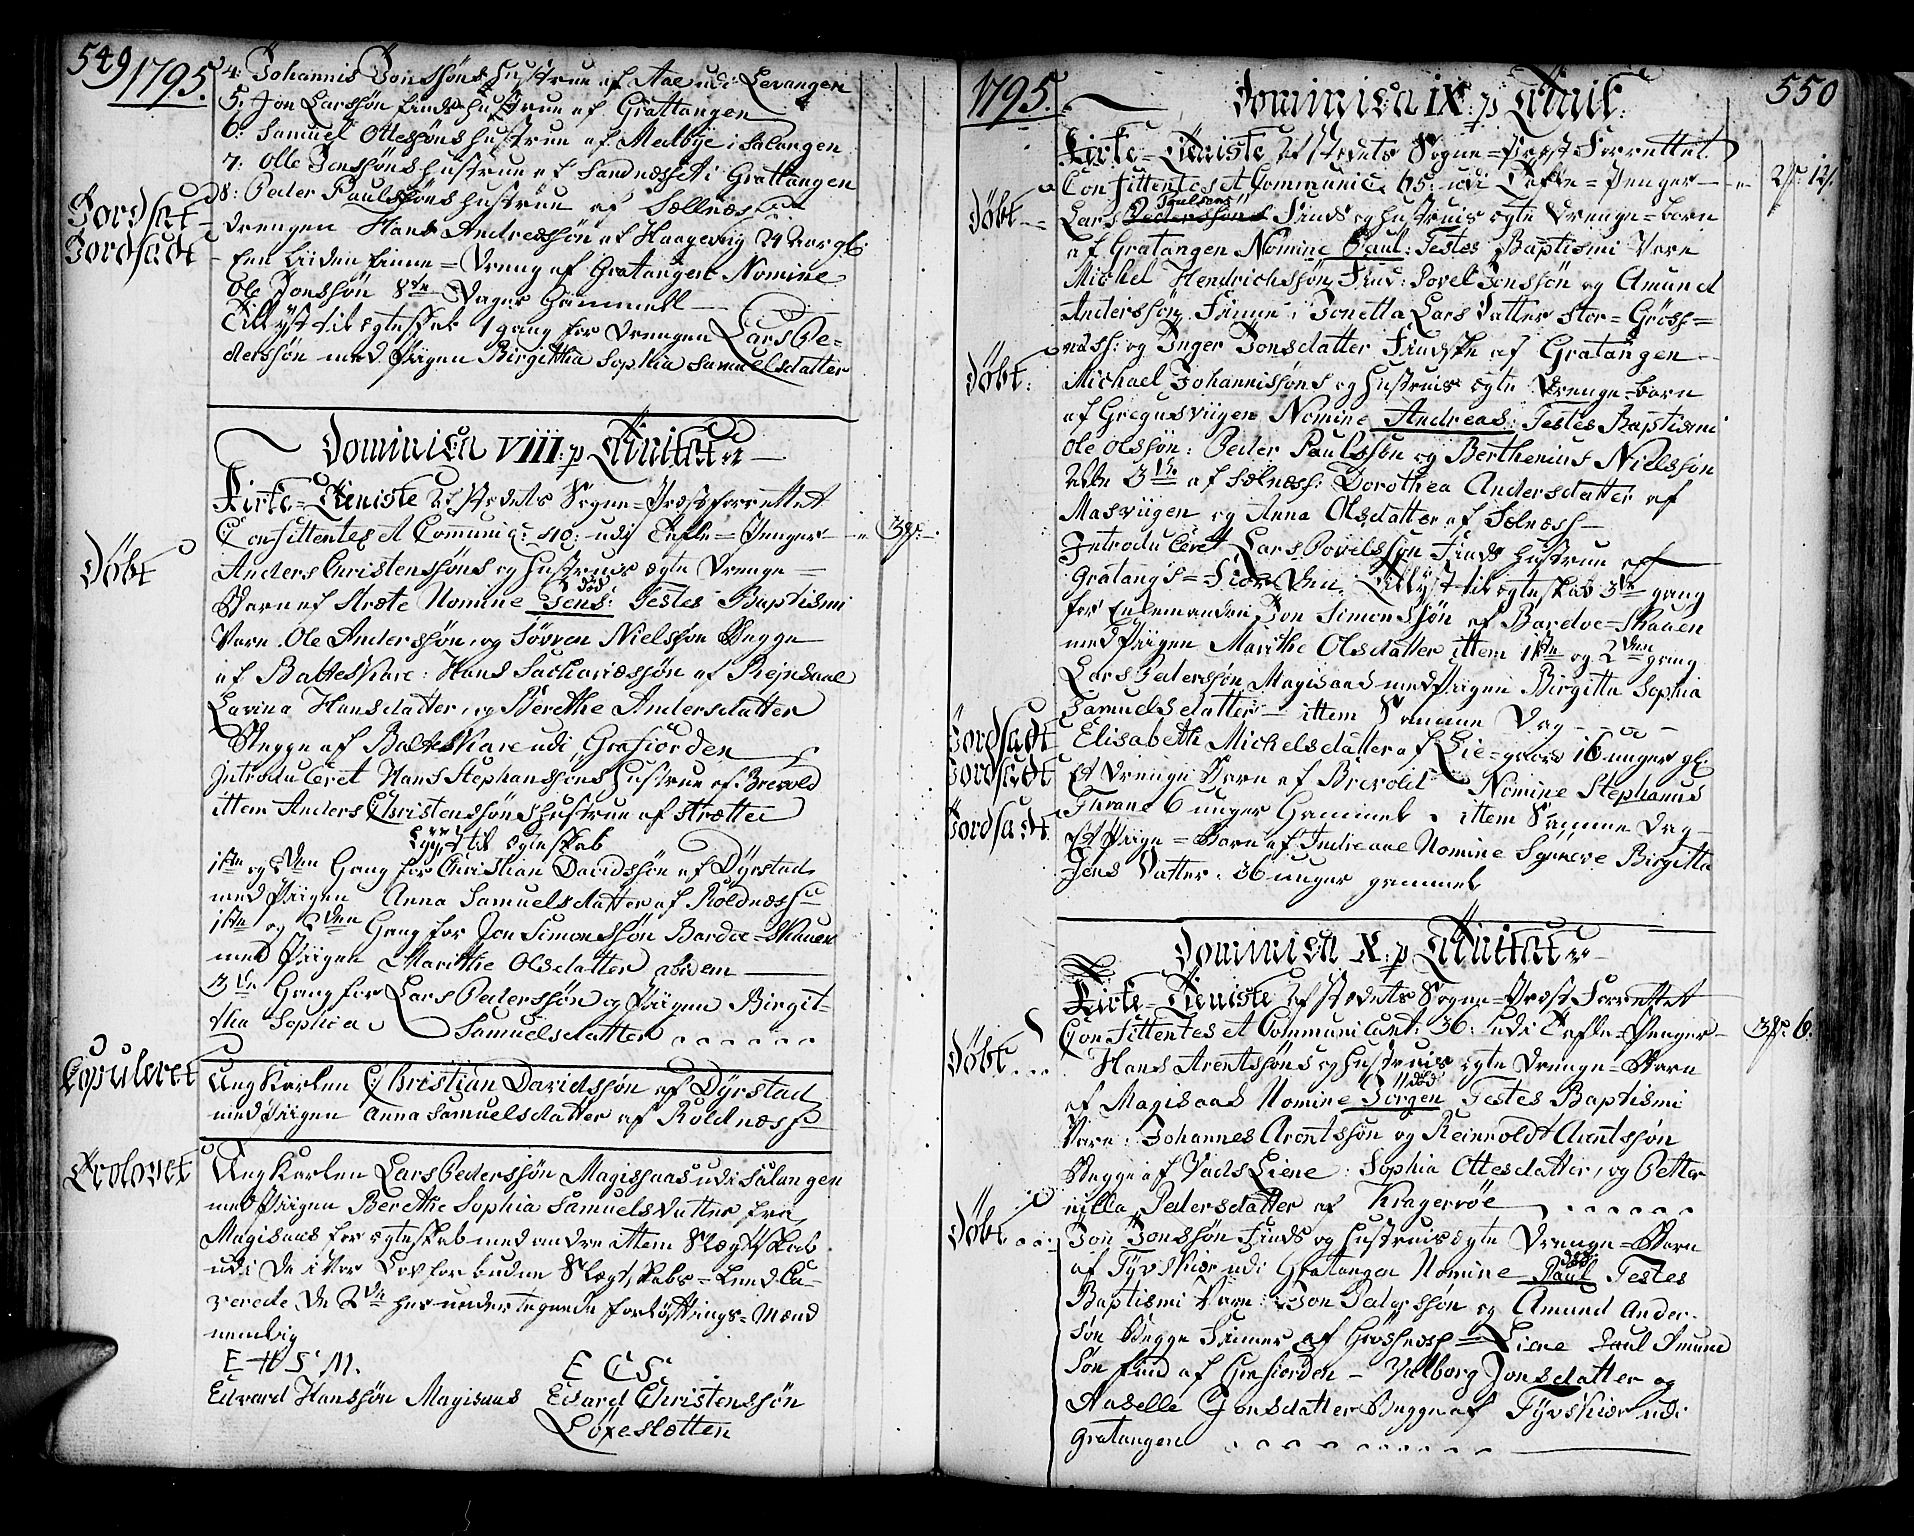 549 1795.
4: Johannis Jonssøns Hustrue af Aae udi Levangen
5. Jon Larssøn Finds Hustrue af Grattangen
6: Samuel Ottessøns Hustrue af Melbye i Salangen
7: Olle Jonssøns Hustrue af Sandnæsset i Grattangen
8: Peder Paulssøns Hustrue af Sællnæs
Jordsat Drengen Hans Andreassøn af Haagevig 24 Aar gl:
Jordsadt Een liiden Finne=Dreng af Gratangen Nomine
Ole Jonssøn 8te Dager Gammell
Tillyst til Egteskab 1 gang for Drengen Lars Pe-
derssøn med Piigen Birgitha Sophia Samuelsdatter
Dominica VIII: p Trinitat
Kirke=Tieniste af Stedets Sogne=Præst forrettet
Confittentes et Communic: 40: udi Tafle=Penger 3
Døbt Anders Christenssøns og Hustrues ægte Drenge
død
Barn af Stræte Nomine Jens: Testes Baptismi
Vare. Ole Anderssøn, og Sørren Nielssøn Begge
af Balteskare: Hans Sachariæssøn af Rejnsaae
Lavina Hansdatter, og Berethe Andersdatter
Begge af Balteskare udi Grafiorden
Introduceret Hans Stephanssøns Hustrue af Brevold
ittem Anders Christenssøns Hustrue af Strættee
Lyyst til Egteskab
1ste og 2den Gang for Christian Davidssøn af Dÿrstad
med Piigen Anna Samuelsdatter af Roldnæss
1ste og 2den Gang for Jon Simonssøn Bardoe=Skauen
med Piigen Marithe Olsdatter abidem
3de Gang for Lars Pederssøn og Piigen Birgit-
tha Sophia Samuelsdatter
Copuleret Ung Karlen Christian Davidssøn af Dÿrstad
med Piigen Anna Samuelsdatter af Roldnæss
Trolovet Ung Karlen Lars Pederssøn Magissaas udi Salangen
med Piigen Berethe Sophia Samuels Datter fra
Magisaas for Egteskab med andre ittem Slægtskab
udi de i Vor Lov forbudne Slægtskabs=Leed Ca-
verede de 2de her undertegnede forløftnings=Mænd
nemlig
E H S M. E C S
Edvard Hanssøn Magisaas Edvard Christenssøn
Løxesletten
1795. Dominica IX: p Trinit: 550
Kirke=Tieniste af Stedets Sogne=Præst Forrettet
Confittentes et Communic: 65: udi Tafle=Penger 2 12
Poulsens
Døbt Lars Pederssøns Finds og Hustrues ægte Drenge=barn
af Gratangen Nomine Paul: Testes Baptismi Vare
Michel Hendrichssøn Find: Povel Jonssøn og Amund
Anderssøn Finne: Jonetta Lars Datter Stor=Gröss=
næss: og Inger Jonsdatter Findske af Gratangen
Døbt: Michael Johannissøns og Hustrues ægte Drenge=barn
af Gregusviigen Nomine Andreas: Testes Baptismi
Ole Olssøn: Peder Paulssøn og Berthenius Nielssøn
alle 3de af Sølnæss: Dorothea Andersdatter af
Masviigen og Anna Olsdatter af Sølnæss
Introduceret Lars Povelssøn Finds Hustrue af
Gratangs=Fiorden. Tillyst til Egteskab 3de gang
for Enkemanden Jon Simonssøn af Bardoe=Skauen
med Piigen Marithe Olsdatter ittem 1ste og 2den gang
Lars Pederssøn Magisaas med Piigen Birgitta Sophia
Samuelsdatter ittem Samme Dag
Jordsadt Elisabeth Michelsdatter af Lie=gaard 16 unger gl:
Jordsadt Et Drenge Barn af Brevold Nomine Stephanus
Thrane 6 unger Gammel. ittem Samme Dag
Jordsadt Et Piige=Barn af Indreaae Nomine Synneve Birgitta
Jens Datter: 36 unger gammel
Dominica X: p Trinitat
Kirke=Tieniste af Stedets Sogne=Præst Forrettet
Confittentes et Communicant: 36: udi Tafle=Penger 3 6:
Døbt Hans Arentssøns og Hustrues ægte Drenge=Barn
død
af Magisaas Nomine Jörgen Testes Baptismi
Vare: Johannes Arentssøn og Reinholdt Arentssøn
Begge af Vads Liene: Sophia Ottesdatter, og Petter
nilla Pedersdatter af Kragerøe
Døbt Jon Jonssøn Finds og Hustrues ægte Drenge=Barn
død
af Tÿvskiær udi Gratangen Nomine Paul Testes
Baptismi Vare: Jon Pederssøn og Amund Ander-
søn Begge Finner af Grøssnæss=Liene Paul Amund
søn Find af Grafiorden – Valborg Jonsdatter og
Aaselle Jonsdatter Begge af Tÿvskiær udi
Gratangen